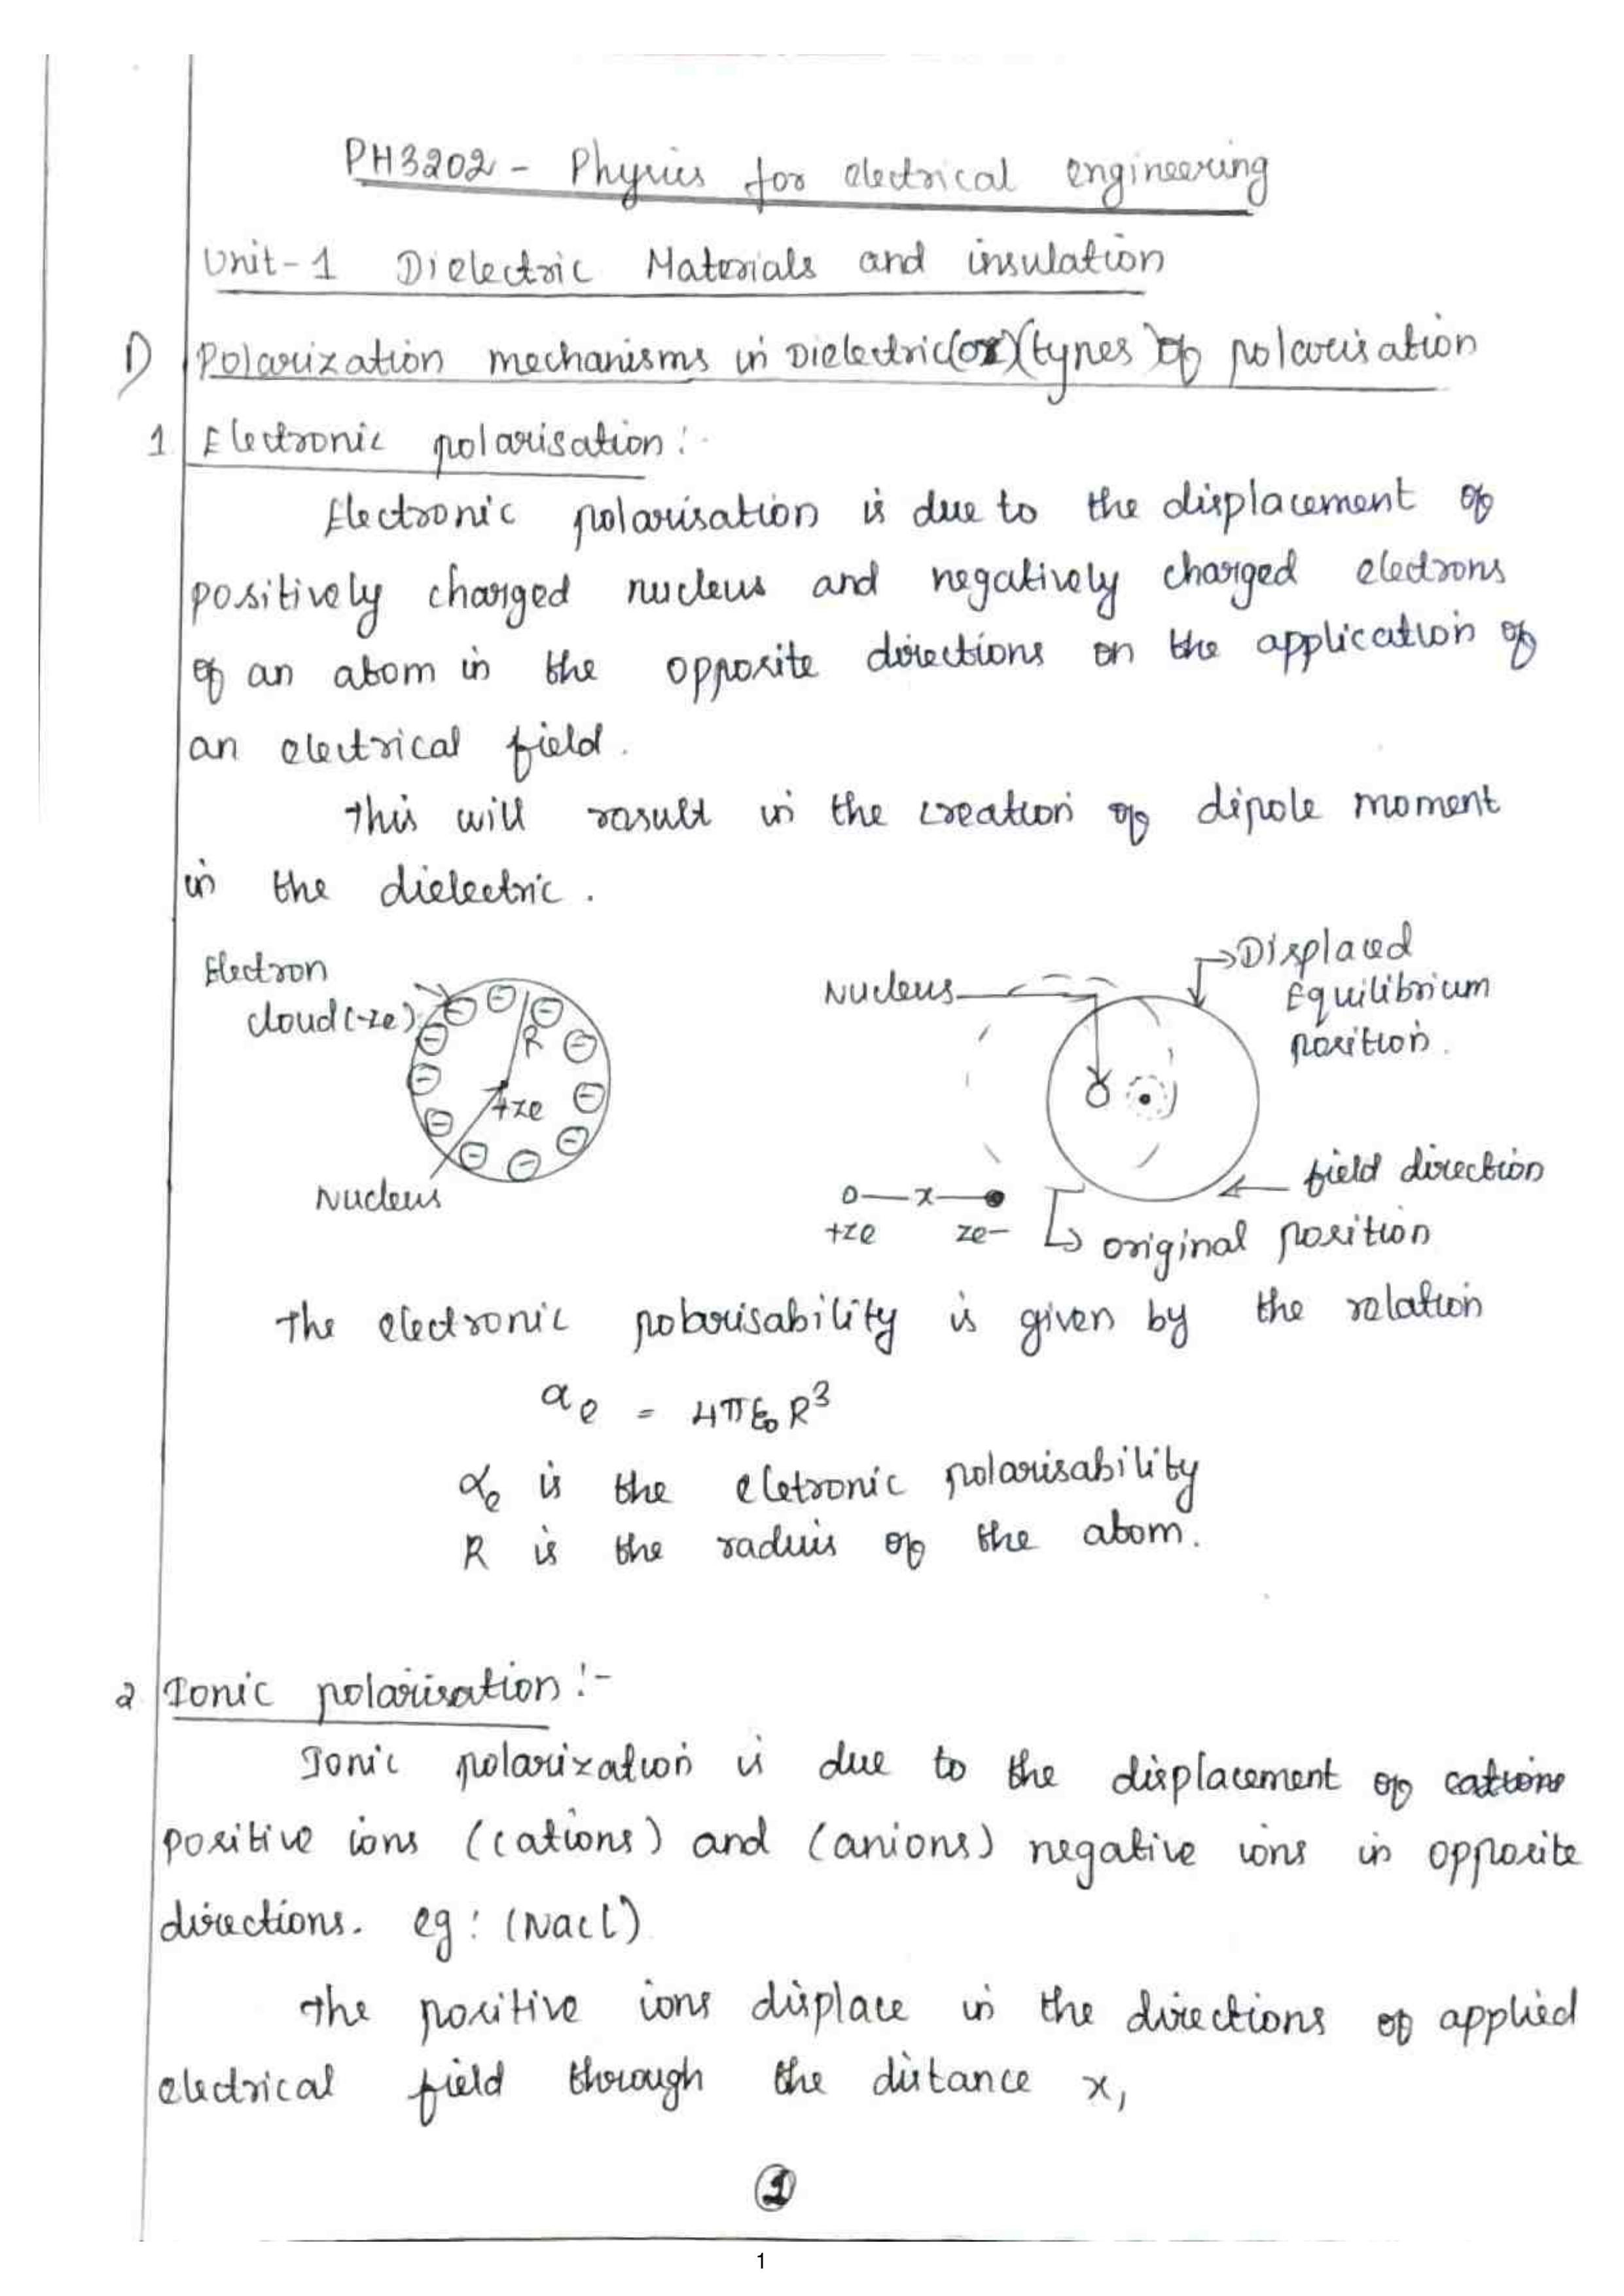 PH3202 - Physics for electrical engineering
Unit-1 Dielectric Materials and insulation
1) Polarization mechanisms in Dielectric (or) (types) of polarisation
1 Electronic polarisation:-
Electronic polarisation is due to the displacement of
positively charged nucleus and negatively charged electrons
of an atom in the opposite directions on the application of
an electrical field.
This will result in the creation of dipole moment
in the dielectric.
Electron
cloud (-ze)
R
+ze
Nucleus
Nucleus
Displaced
Equilibrium
position.
field direction
original position
x
+ze ze-
The electronic polarisability is given by the relation
αe = 4πε₀R³
αe is the eletronic polarisability
R is the raduis of the atom.
2 Ionic polarisation:-
Ionic polarization is due to the displacement of cations
positive ions (cations) and (anions) negative ions in opposite
directions. eg: (Nacl)
The positive ions displace in the directions of applied
electrical field through the distance x,
1
1